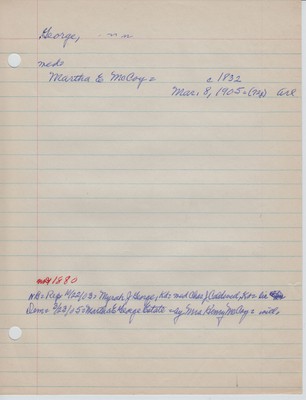 George,
md
Martha E McCoy = c 1832
Mar. 8, 1905 = (np)
not 1880
nk = Rep 4/22/03 = Myrah J. George, Kit = md Chas J. Caldwell, Kit =
Dem = 3/23/05 = Martha E George Estate - by Mrs. Henry McCoy =